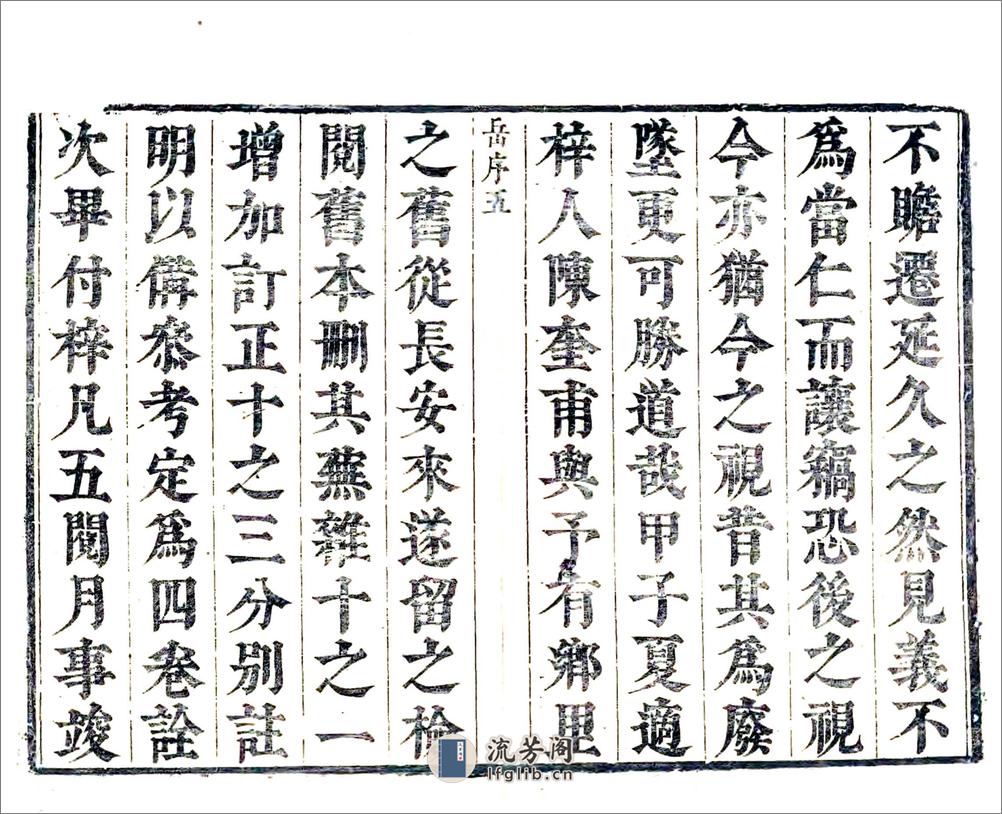 不瞻遷延久之然見義不
爲當仁而讓竊恐後之視
今亦猶今之視昔其爲廢
墜更可勝道哉甲子夏適
梓人陳奎甫與予有鄉里
岳序五
之舊從長安來遂留之檢
閱舊本刪其蕪雜十之一
增加訂正十之三分別註
明以備叅考定爲四卷詮
次畢付梓凡五閱月事竣
流芳阁
lfglib.cn